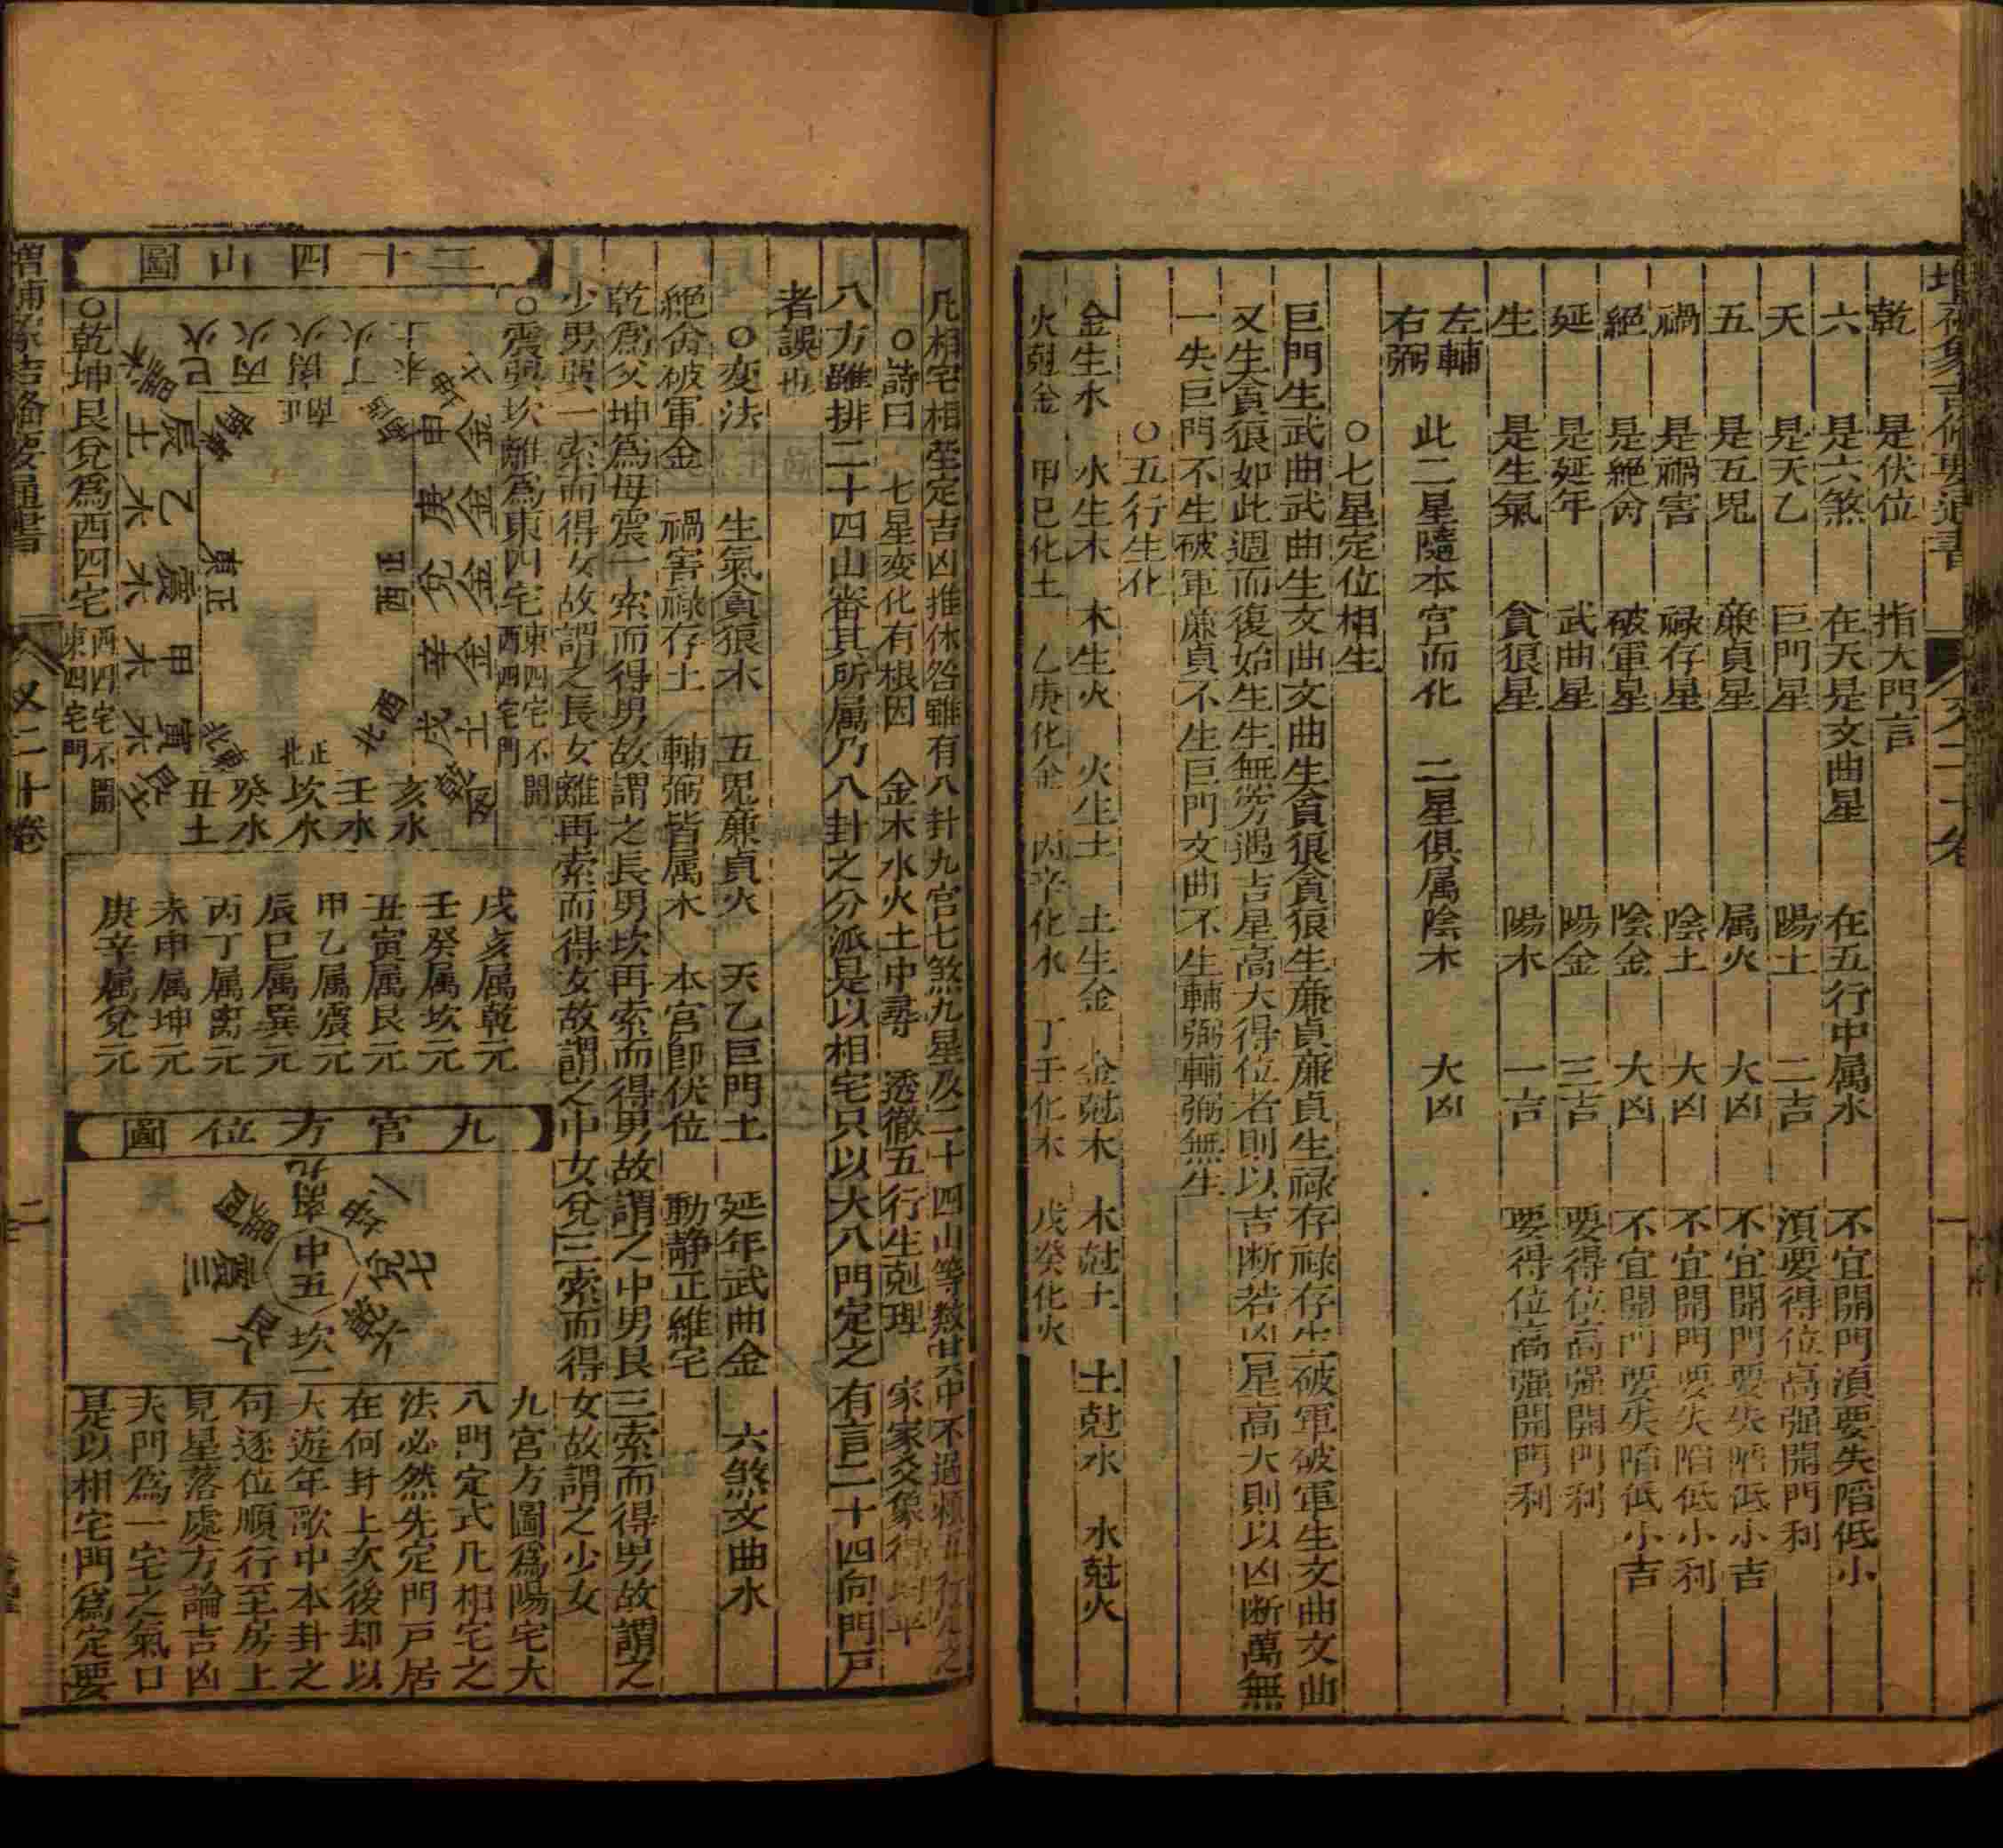 乾　是伏位　指大門言
六　是六煞　在天是文曲星　在五行中属水　不宜開門湏要失陷低小
天　是天乙　巨門星　陽土　二吉　湏要得位高强開門利
五　是五鬼　廉貞星　属火　大凶　不宜開門要失陷低小吉
禍　是禍害　禄存星　陰土　大凶　不宜開門要失陷低小利
絕　是絕命　破軍星　陰金　大凶　不宜開門要失陷低小吉
延　是延年　武曲星　陽金　三吉　要得位高强開門利
生　是生氣　貪狼星　陽木　一吉　要得位高强開門利
左輔
右弼　此二星隨本宮而化　二星俱属陰木　大凶
○七星定位相生
巨門生武曲武曲生文曲文曲生貪狼貪狼生廉貞廉貞生禄存禄存生破軍破軍生文曲文曲
又生貪狼如此週而復始生生無穷遇吉星高大得位者則以吉断若凶星高大則以凶断萬無
一失巨門不生破軍廉貞不生巨門文曲不生輔弼輔弼無生
○五行生化
金生水　水生木　木生火　火生土　土生金　金尅木　木尅土　土尅水　水尅火
火尅金　甲巳化土　乙庚化金　丙辛化水　丁壬化木　戊癸化火
凡相宅相塋定吉凶推休咎雖有八卦九宮七煞九星及二十四山等数其中不過
○詩曰　七星变化有根因　金木水火土中尋　透徹五行生尅理　家家爻象得均平
八方雖排二十四山審其所属乃八卦之分派是以相宅只以大八門定之有言二十四向門戸
者誤也
○变法　生氣貪狼木　五鬼廉貞火　天乙巨門土　延年武曲金　六煞文曲水
絕命破軍金　禍害禄存土　輔弼皆属木　本宮卽伏位　動静正維宅
乾爲父坤爲母震一索而得男故謂之長男坎再索而得男故謂之中男艮三索而得男故謂之
少男巽一索而得女故謂之長女離再索而得女故謂之中女兌三索而得女故謂之少女
○震巽坎離爲東四宅東四宅不開西四宅門
二十四山圖
丁火
丙火
巳火
正南
申金
庚金
兌金
辛金
戌土
亥水
壬水
坎水
癸水
丑土
寅木
甲木
震木
乙木
辰土
正西
西北
正北
東北
正東
○乾坤艮兌爲西四宅西四宅不開東四宅門
戌亥属乾元
壬癸属坎元
丑寅属艮元
甲乙属震元
辰巳属巽元
丙丁属离元
未申属坤元
庚辛属兌元
九宮方位圖
中五
坎一
坤二
震三
巽四
乾六
兌七
艮八
離九
九宮方圖爲陽宅大
八門定式凡相宅之
法必然先定門戸居
在何卦上次後却以
大遊年歌中本卦之
句逐位順行至房上
見星落處方論吉凶
夫門爲一宅之氣口
是以相宅門爲定要
又二十卷
二